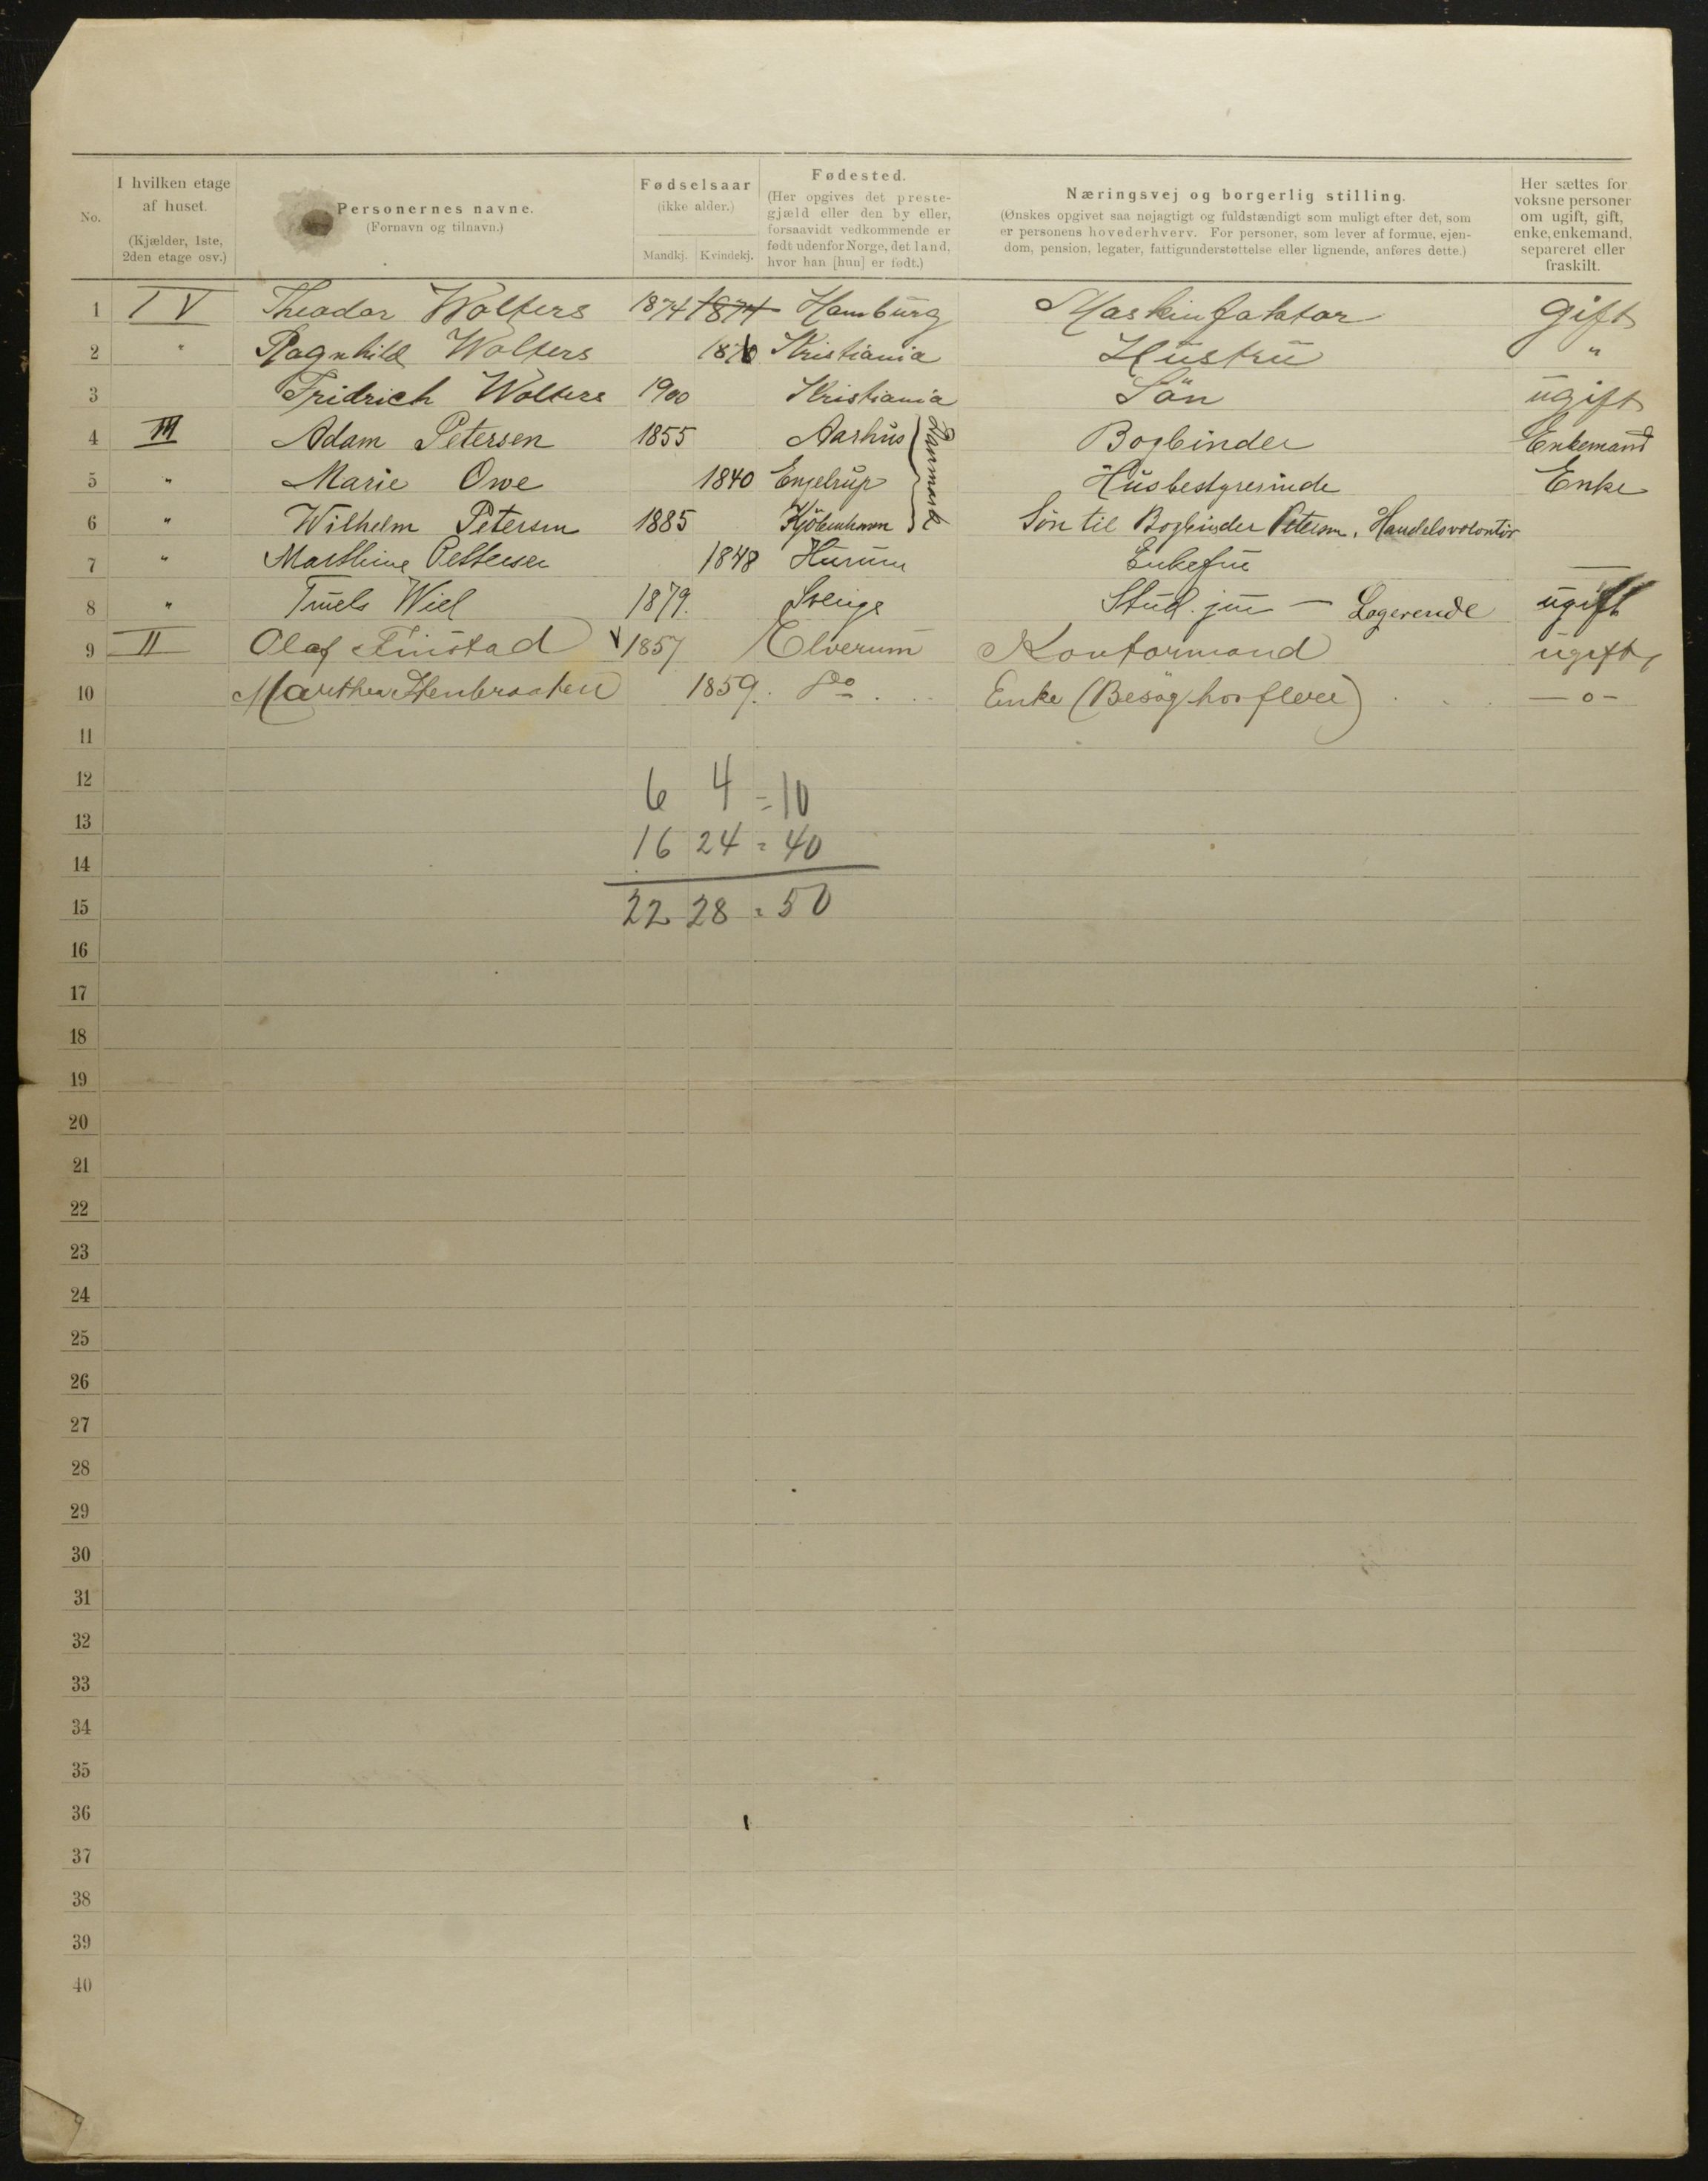 No.
I hvilken etage
af huset.
(Kjælder, 1ste,
2den etage osv.)
Personernes navne.
(Fornavn og tilnavn.)
Fødselsaar
(ikke alder.)
Mandkj. Kvindekj.
Fødested.
(Her opgives det preste-
gjæld eller den by eller,
forsaavidt vedkommende er
født udenfor Norge, det land,
hvor han [hun] er født.)
Næringsvej og borgerlig stilling.
(Ønskes opgivet saa nøjagtigt og fuldstændigt som muligt efter det, som
er personens hovederhverv. For personer, som lever af formue, ejen-
dom, pension, legater, fattigunderstøttelse eller lignende, anføres dette.)
Her sættes for
voksne personer
om ugift, gift,
enke, enkemand,
separeret eller
fraskilt.
1 IV Theodor Wolters 1874 1874 Hamburg Maskinfaktor gift
2 " Ragnhild Wolters Kristiania Hustru "
3 Fridrich Wolters 1900 Kristiania Sön ugift
4 III Adam Petersen 1855 Aarhus Danmark Bogbinder Enkemand
5 " Marie Owe 1840 Engelrup Husbestyrerinde Enke
6 " Wilhelm Petersen 1885 Kjöbenhavn Sön til Bogbinder Petersen, Handelsvolontör
7 " Marthine Pettersen 1848 Hurum Enkefru —
8 " Truels Wiel 1879. Sverige Stud. jur — Logerende ugift
9 II Olaf Finstad 1857 Elverum Kontormand ugift
10 Marthea Stenbraaten 1859. Do Enke (Besög hos flere) —o—
11
12
6 4 = 10
13
16 24 = 40
14
15
22 28 = 50
16
17
18
19
20
21
22
23
24
25
26
27
28
29
30
31
32
33
34
35
36
37
38
39
40